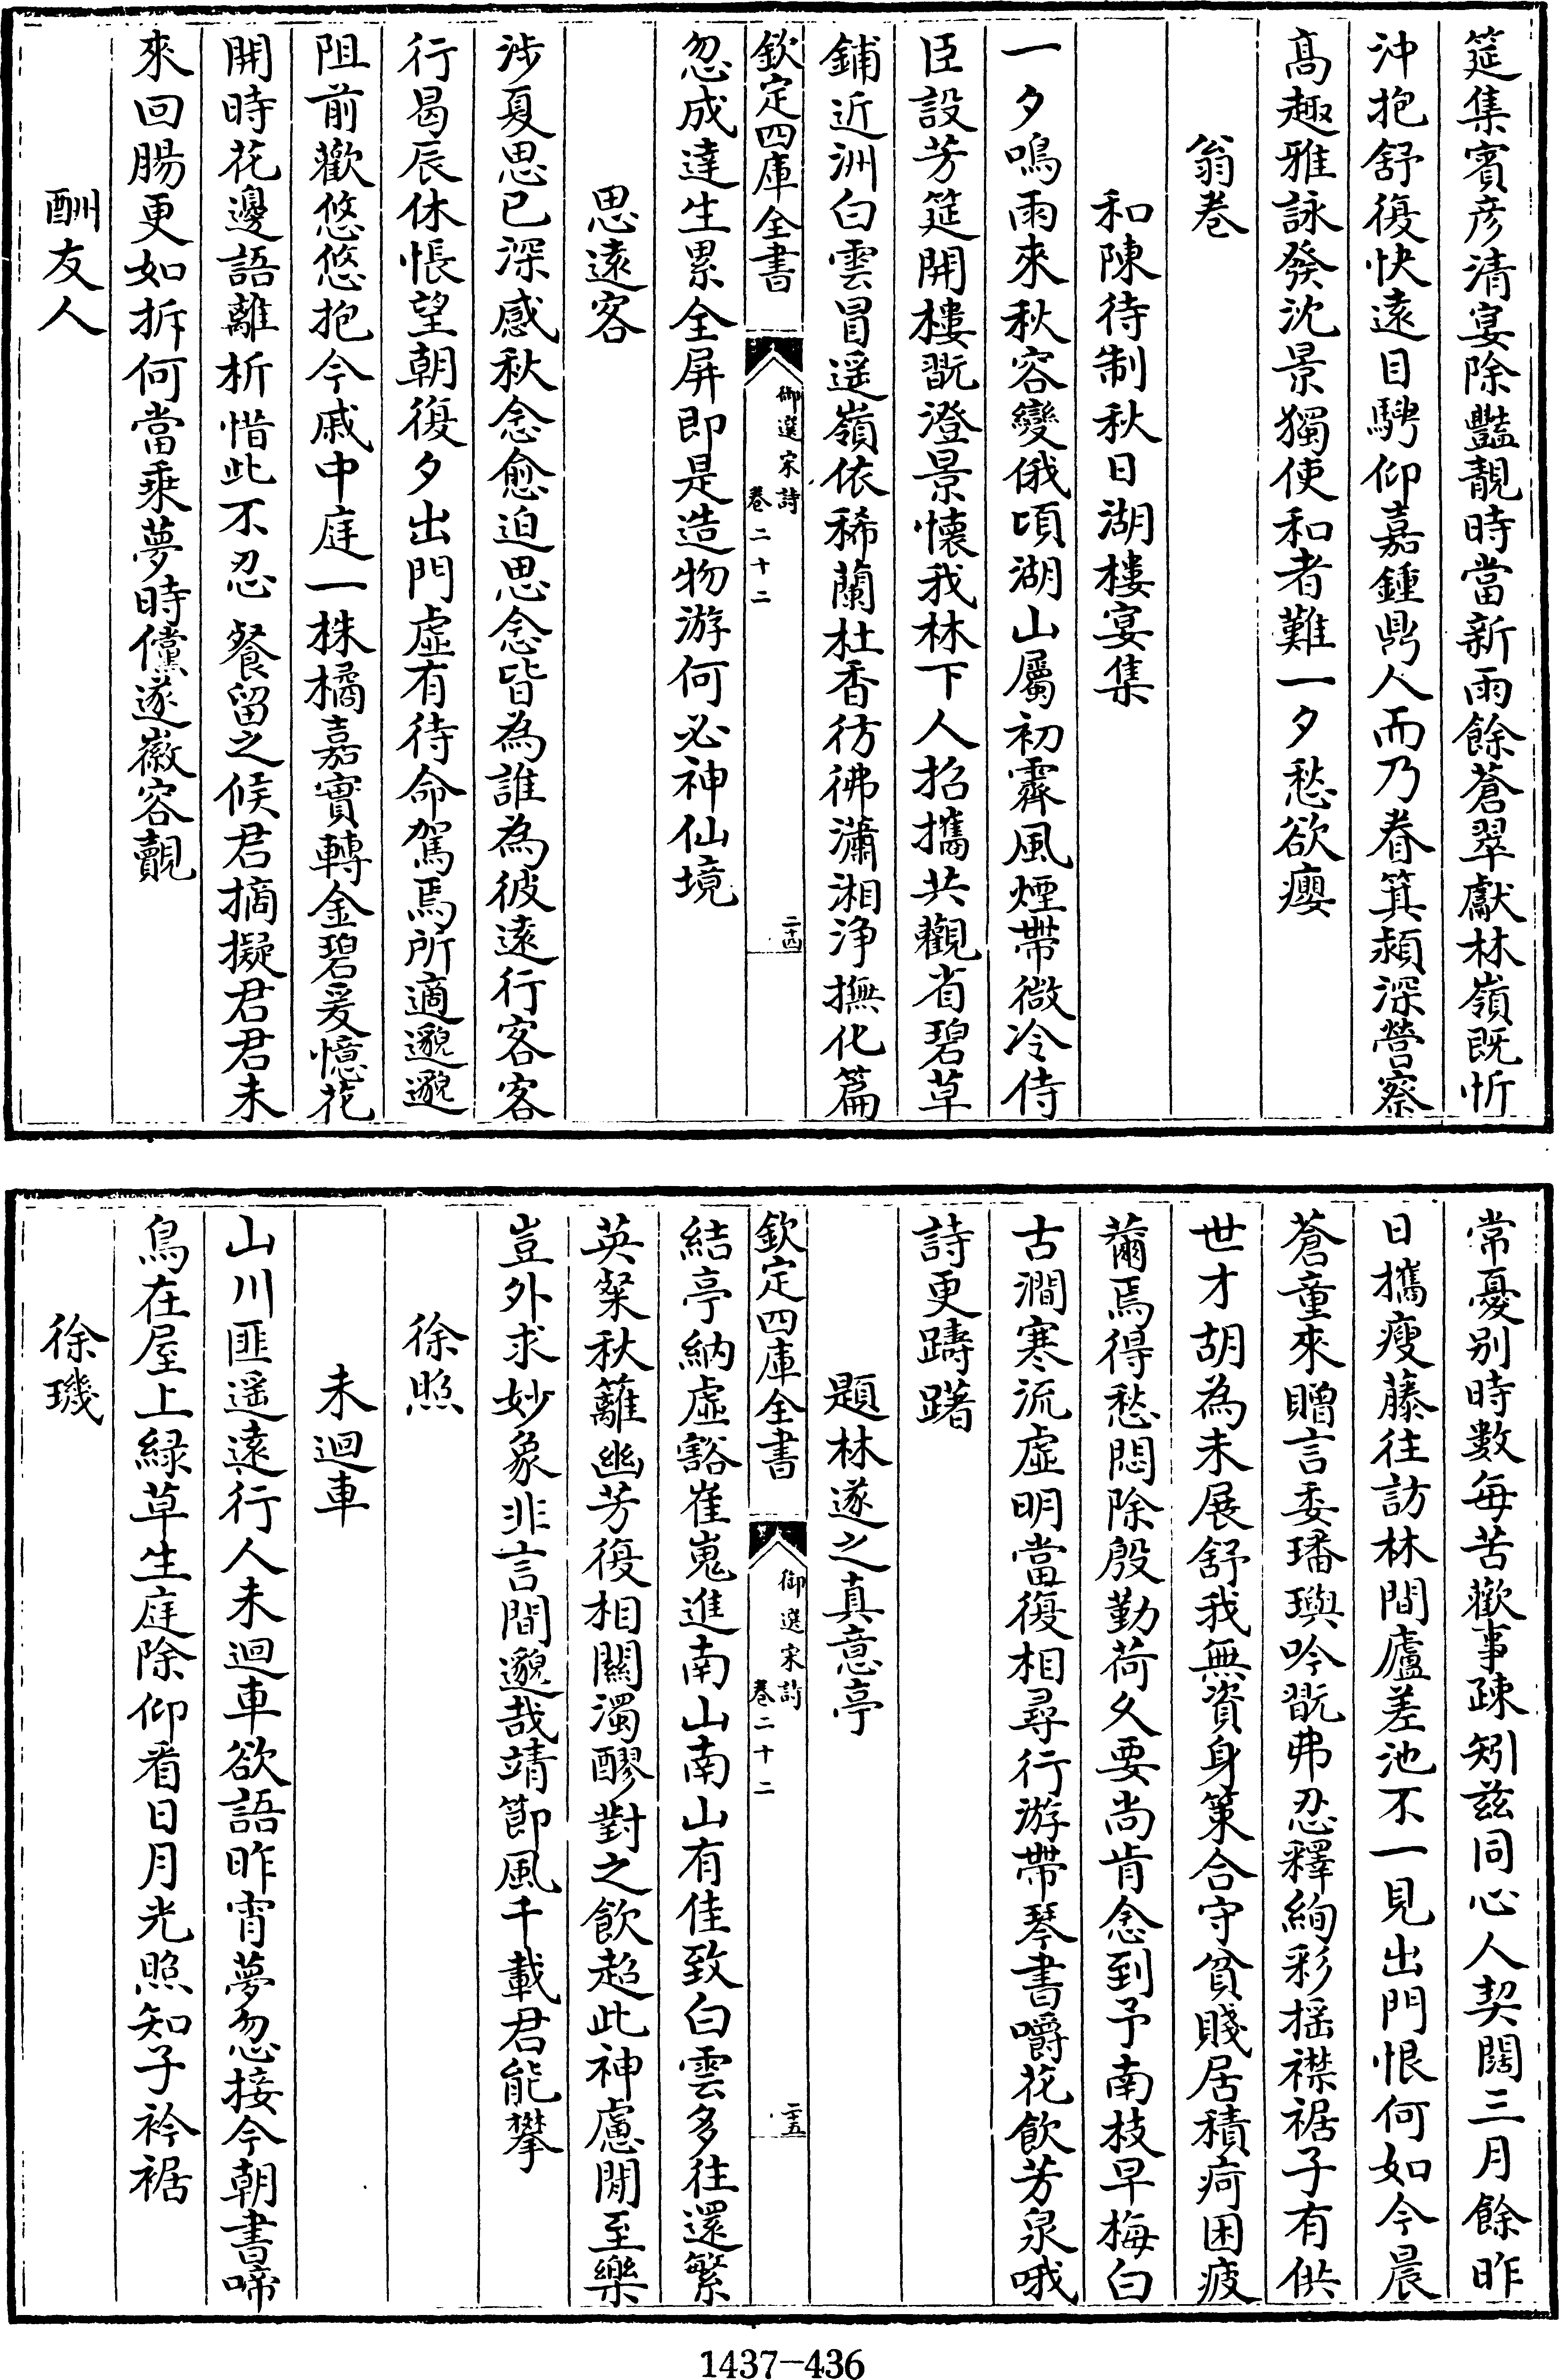 筵集賓彦清宴除豔靚時當新雨餘蒼翠獻林嶺既忻
沖抱舒復快遠目騁仰嘉鍾鼎人而乃眷箕潁深營察
髙趣雅詠發沈景獨使和者難一夕愁欲癭
翁卷
和陳待制秋日湖樓宴集
一夕鳴雨來秋容變俄頃湖山屬初霽風煙帶微冷侍
臣設芳筵開樓翫澄景懷我林下人招攜共觀省碧草
鋪近洲白雲冒遥嶺依稀蘭杜香彷彿瀟湘浄撫化篇
欽定四庫全書
御選宋詩
卷二十二
二十四
忽成達生累全屏即是造物游何必神仙境
思遠客
涉夏思已深感秋念愈迫思念皆為誰為彼遠行客客
行曷辰休悵望朝復夕出門虛有待命駕焉所適邈邈
阻前歡悠悠抱今戚中庭一株橘嘉實轉金碧爰憶花
開時花邊語離析惜此不忍餐留之候君摘擬君君未
來回腸更如拆何當乘夢時儻遂徽容覿
酬友人
常憂别時數每苦歡事疎矧兹同心人契闊三月餘昨
日攜瘦藤往訪林間廬差池不一見出門恨何如今晨
蒼童來贈言委璠璵吟翫弗忍釋絢彩摇襟裾子有供
世才胡為未展舒我無資身策合守貧賤居積疴困疲
薾焉得愁悶除殷勤荷久要尚肯念到予南枝早梅白
古澗寒流虛明當復相尋行游帶琴書嚼花飲芳泉哦
詩更躊躇
題林遂之真意亭
欽定四庫全書
御選宋詩
卷二十二
二十五
結亭納虛豁崔嵬進南山南山有佳致白雲多往還繁
英粲秋籬幽芳復相關濁醪對之飲超此神慮閒至樂
豈外求妙象非言間邈哉靖節風千載君能攀
徐照
未迴車
山川匪遥遠行人未迴車欲語昨宵夢忽接今朝書啼
鳥在屋上緑草生庭除仰看日月光照知子衿裾
徐璣
1437-436